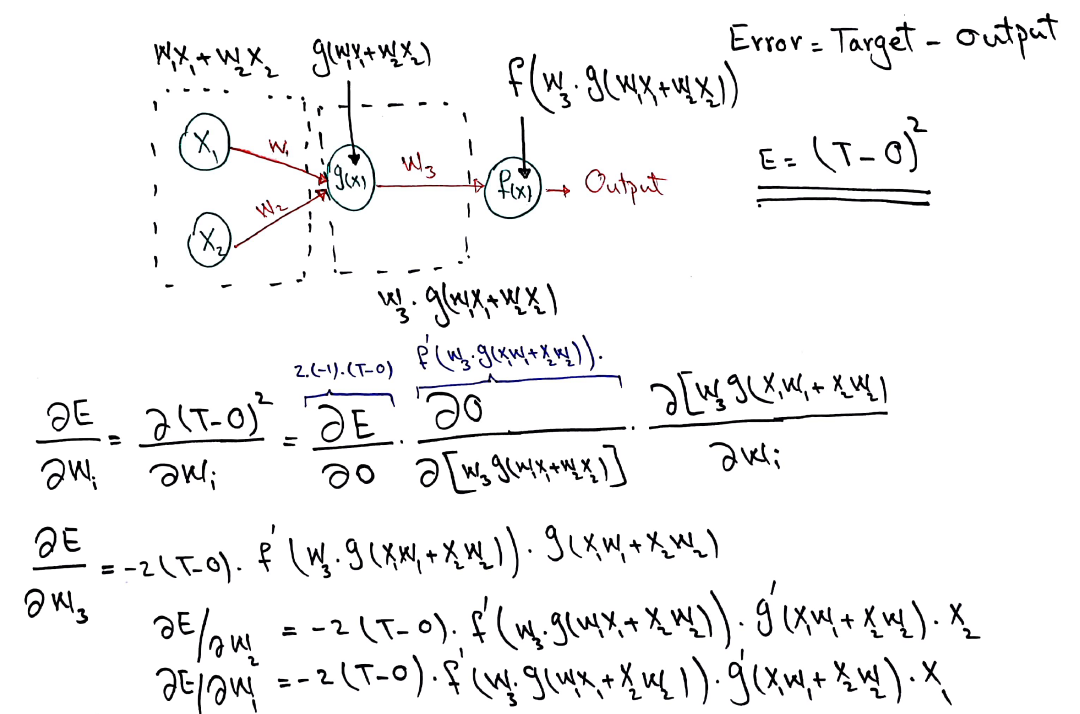 Error = Target - output
W₁X₁ + W₂X₂
g(W₁X₁+W₂X₂)
f(W₃.g(W₁X₁+W₂X₂))
E = (T-O)²
X₁
W₁
g(x)
W₃
f(x)
Output
W₂
X₂
W₃.g(W₁X₁+W₂X₂)
2.(-1).(T-O)
f'(W₃.g(X₁W₁+X₂W₂)).
∂E/∂Wᵢ = ∂(T-O)²/∂Wᵢ = ∂E/∂O . ∂O/∂[W₃g(W₁X₁+W₂X₂)] . ∂[W₃g(X₁W₁+X₂W₂)/∂Wᵢ
∂E/∂W₃ = -2(T-O). f'(W₃.g(X₁W₁+X₂W₂)). g(X₁W₁+X₂W₂)
∂E/∂W₂ = -2(T-O). f'(W₃.g(W₁X₁+X₂W₂)). g'(X₁W₁+X₂W₂). X₂
∂E/∂W₁ = -2(T-O). f'(W₃.g(W₁X₁+X₂W₂)). g'(X₁W₁+X₂W₂). X₁